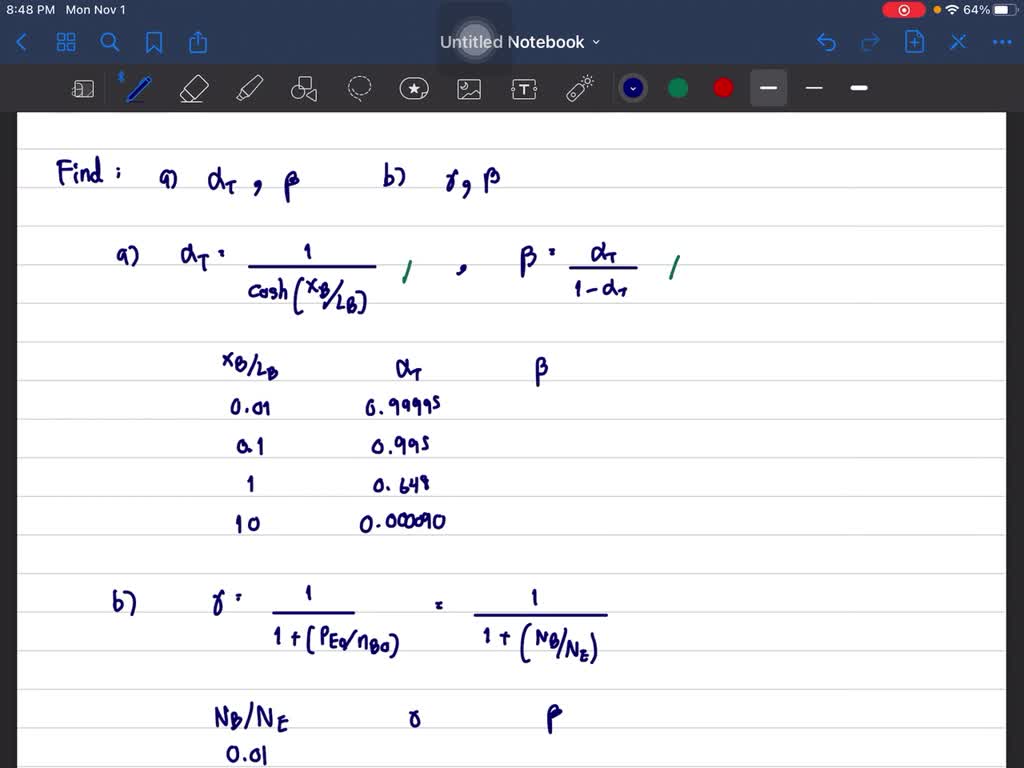 8:48 PM Mon Nov 1 64%
Untitled Notebook
T
Find : a) α_T , β b) γ, β
a) α_T = 1 / cosh (x_B/L_B) / , β = α_T / 1 - α_T /
x_B/L_B α_T β
0.01 0.99995
0.1 0.995
1 0.648
10 0.000090
b) γ = 1 / 1 + (P_E0/n_B0) = 1 / 1 + (N_B/N_E)
N_B/N_E γ β
0.01